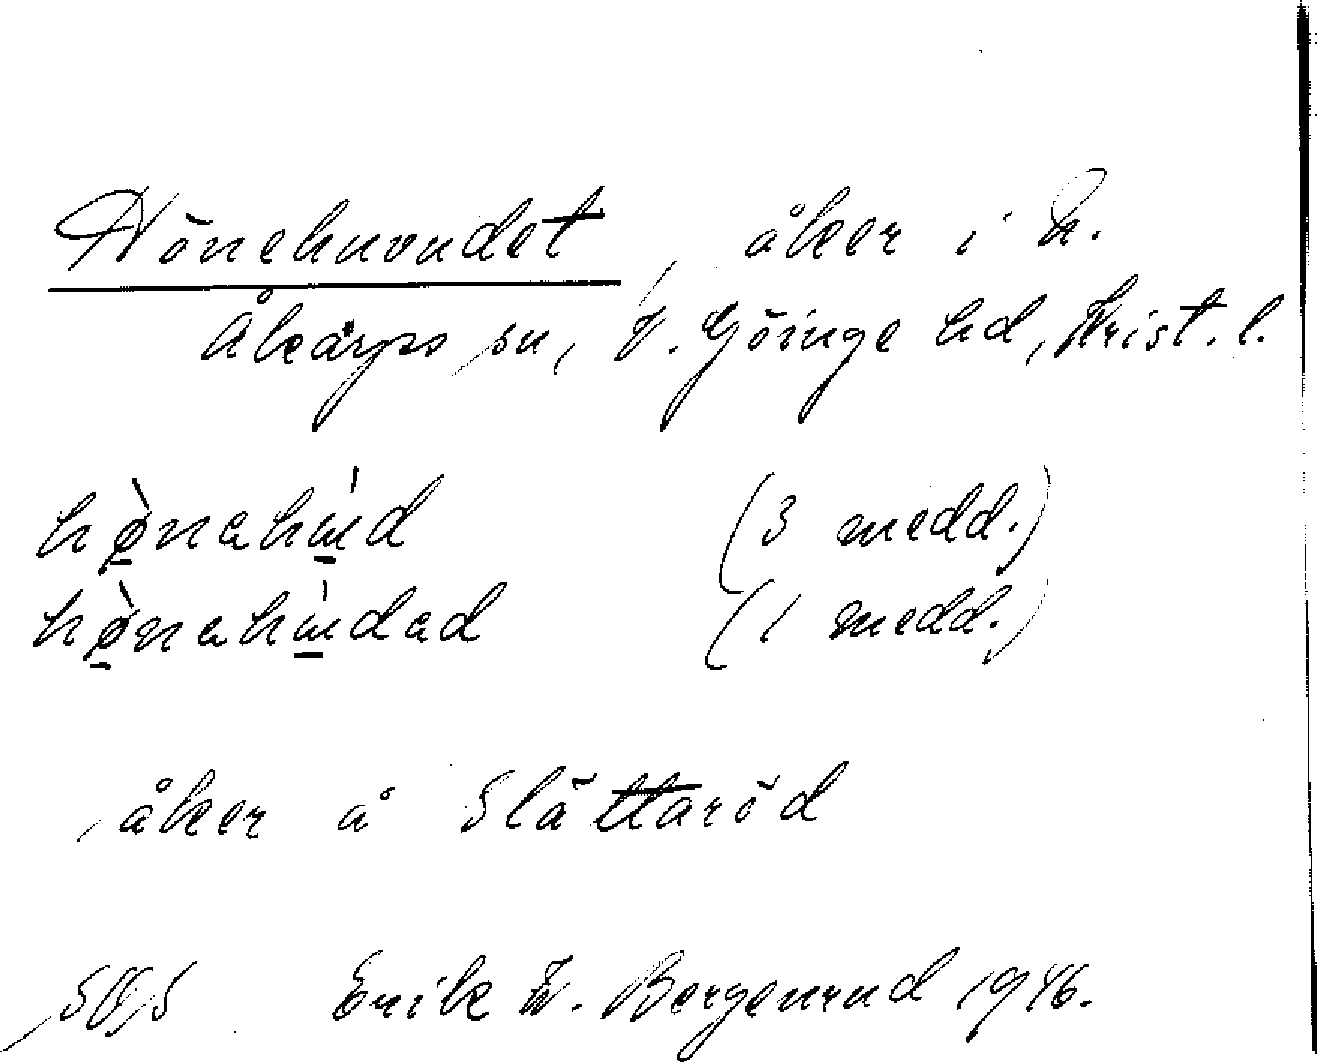 Hönehuvudet, åker i N.
Åkarps sn, V. Göinge hd, Krist. l.
hø̀nahùd (3 medd.)
hø̀nahùdad (1 medd.)
åker å Slättaröd
Erik W. Bergenrud 1946.